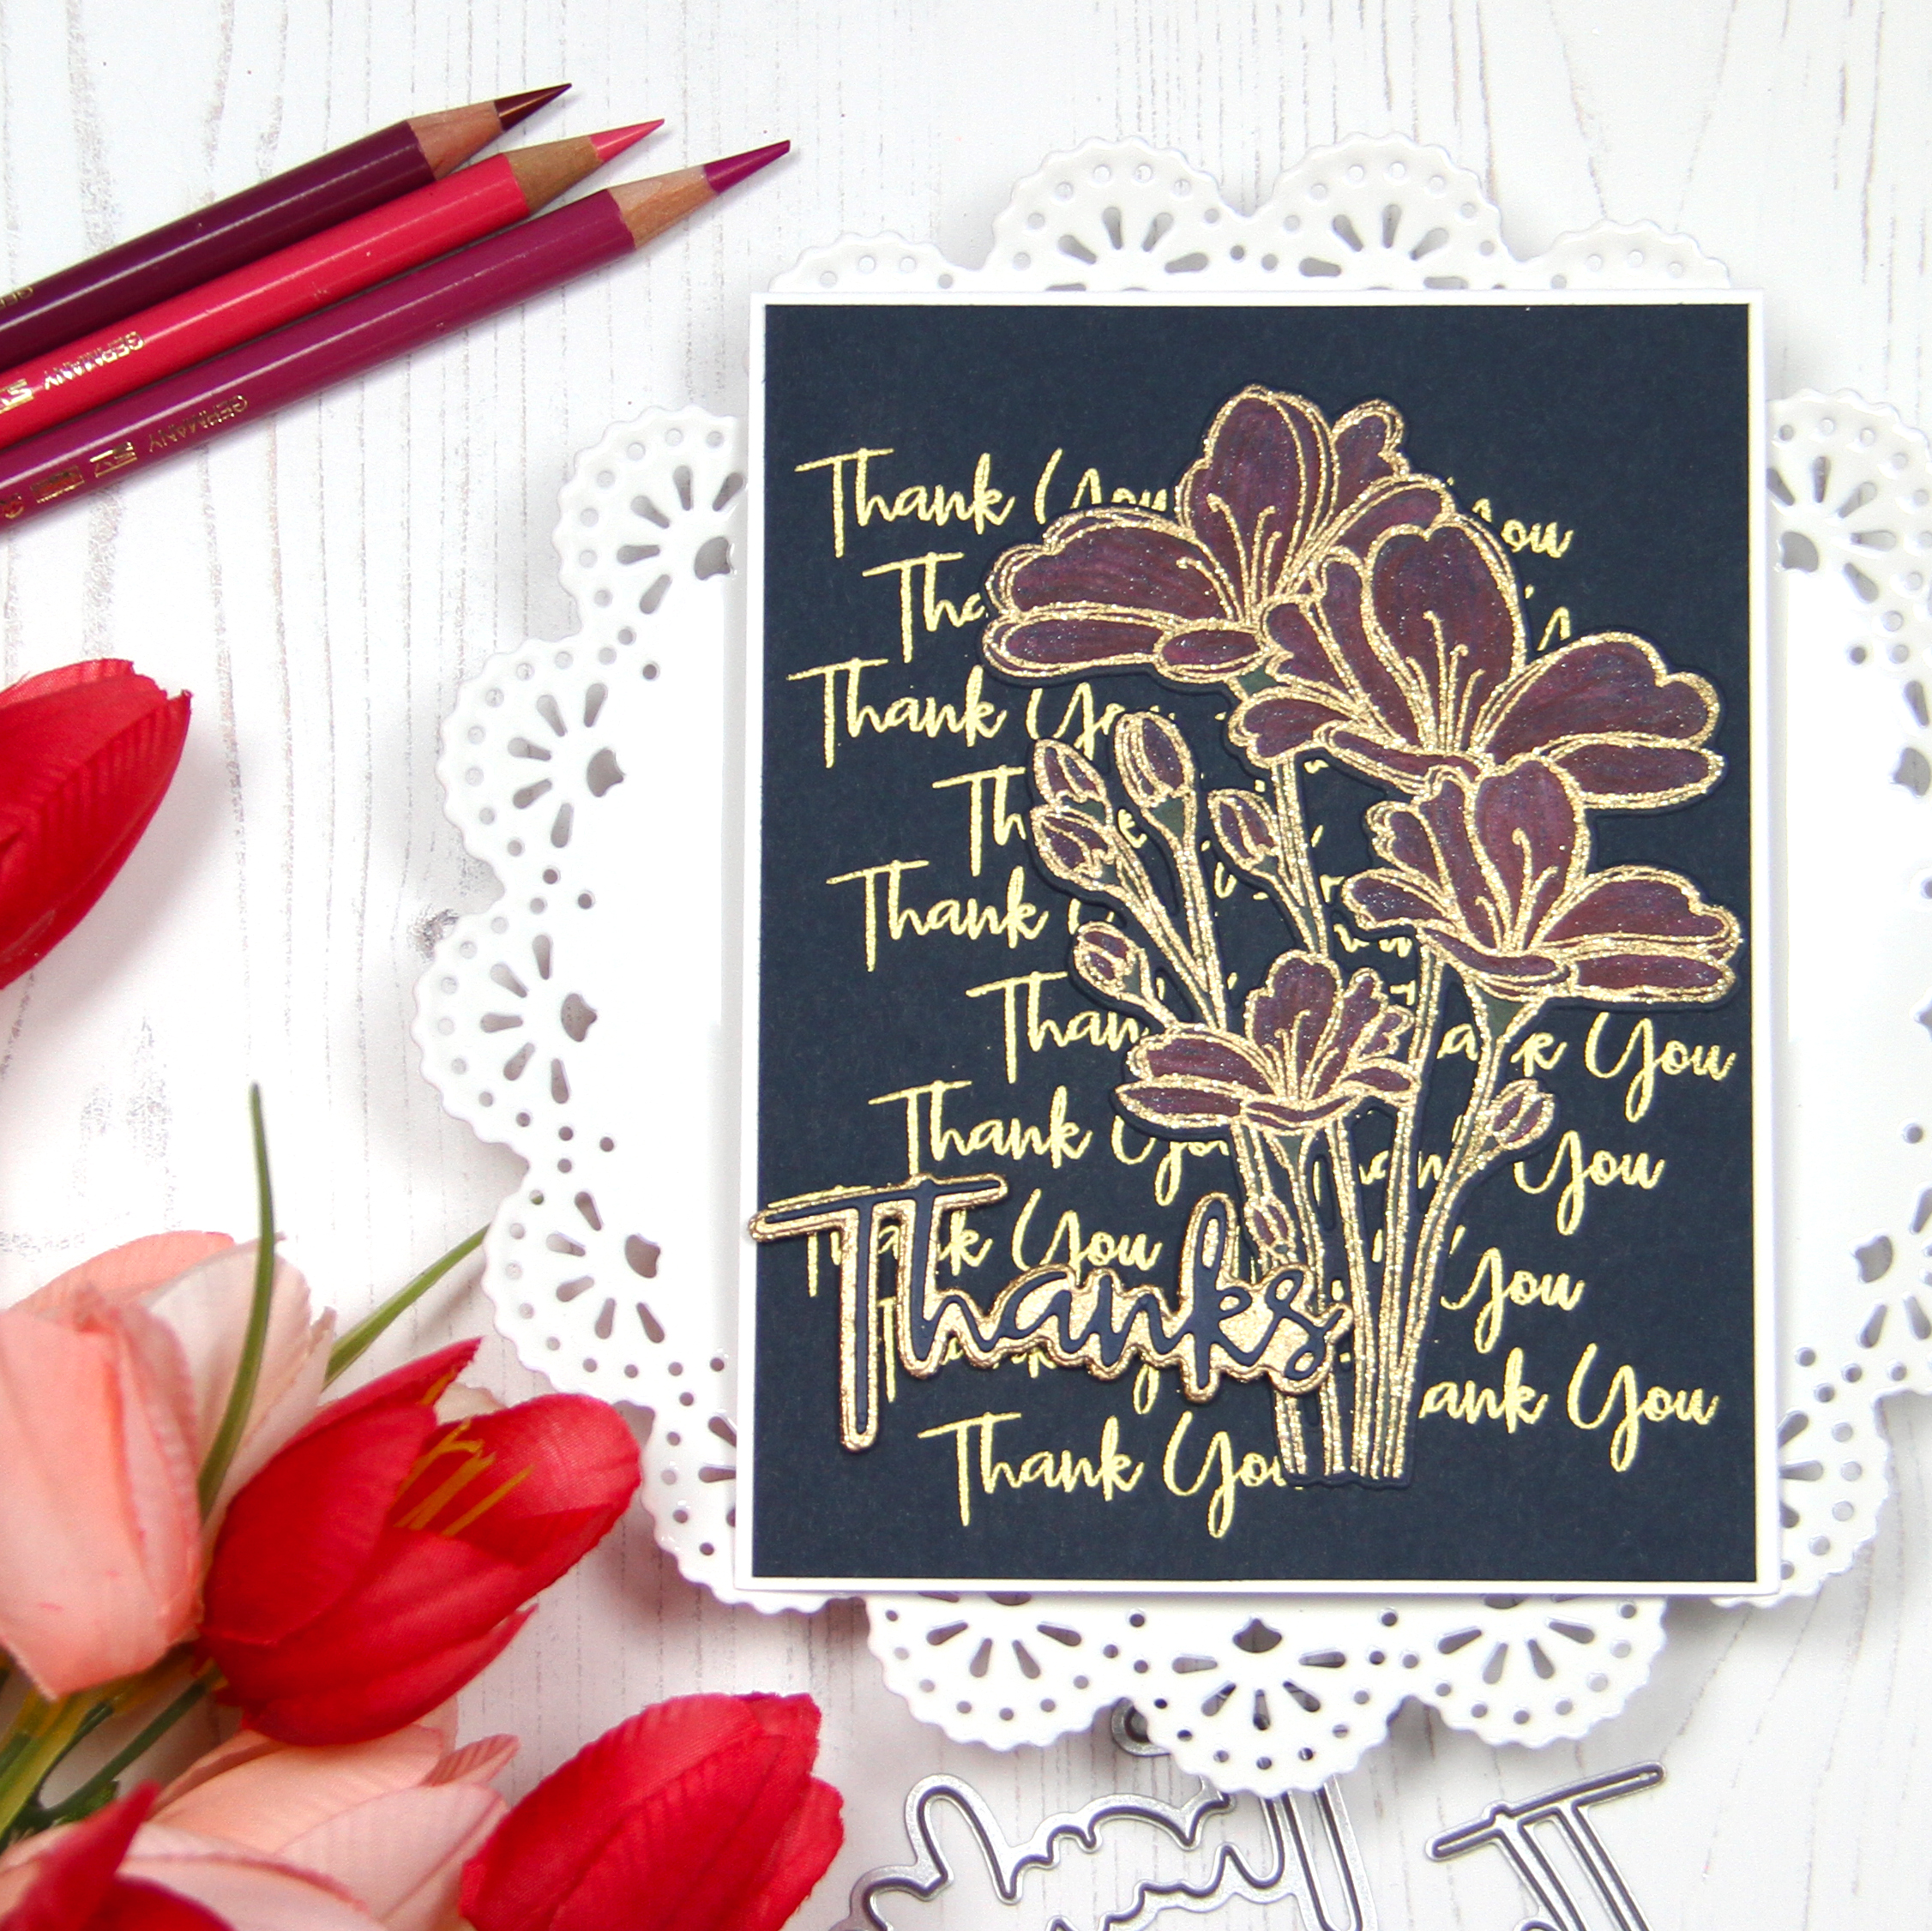 GERMANY
GERMANY
Thank You You
Thank
Thank You
Thank
Thank You Thank You
Thank You You
Thank You You
Thanks
Thank You
Thank You